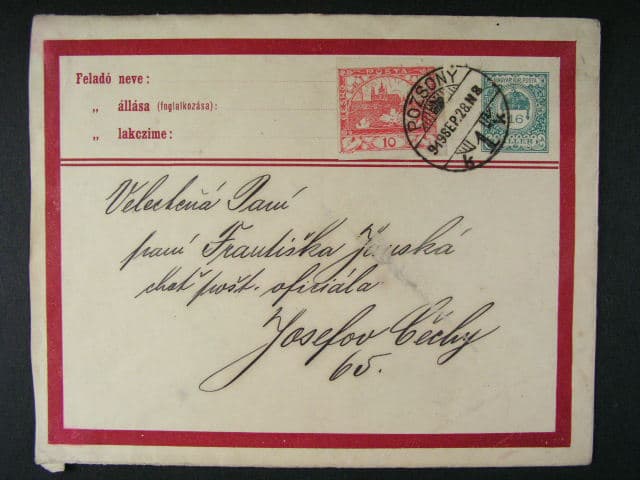 Feladó neve:
„ állása (foglalkozása):
„ lakczime:
POSTA
10
POZSONY
919 SEP. 28. N 8
MAGYAR KIR. POSTA
16
FILLÉR
Velectěná Paní
paní Františka
choť pošt. oficiála
Josefov Čechy
65.